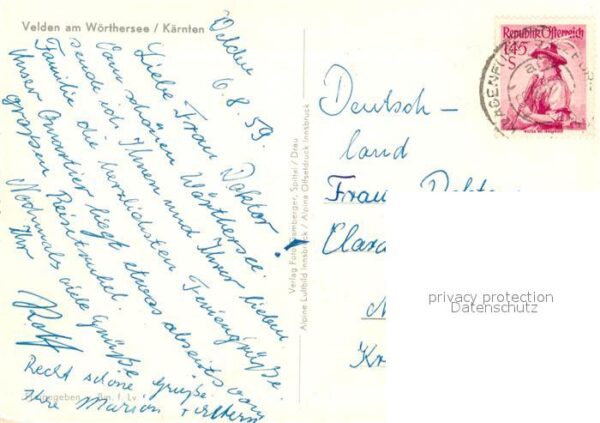 Velden am Wörthersee / Kärnten
Velden
6.8.59.
Liebe Frau Doktor!
Vom schönen Wörthersee
sende ich Ihnen und Ihrer lieben
Familie die herzlichsten Feriengrüße.
Unser Quartier liegt etwas abseits vom
großen Reisetrubel.
Nochmals viele Grüße
Ihr
Rolf
Recht schöne Grüße
Ihre Marion + Eltern
Verlag Foto Bamberger, Spittal / Drau
Alpine Luftbild Innsbruck / Alpine Offsetdruck Innsbruck
Republik Österreich
1.45
S
KLAGENFURT
Deutsch-
land
Frau
Clara
privacy protection
Datenschutz